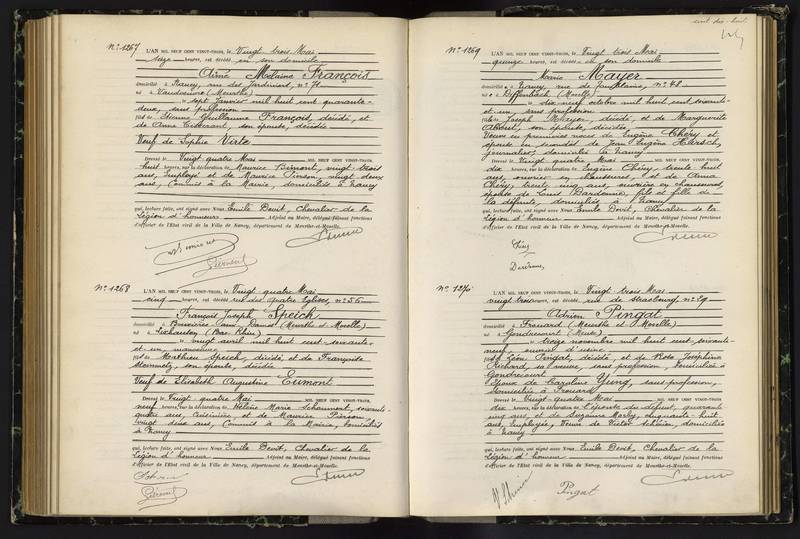 N° 1267
L'AN MIL NEUF CENT VINGT-TROIS, le Vingt trois Mai
seize heures, est décédé en son domicile
Aimé François
domicilié à Nancy, rue des Jardiniers, n° 71
né à Vandoeuvre (Meurthe)
sept Janvier mil huit cent quarante-
deux, sans profession
fils de Etienne Guillaume François, décédé, et
de Anne son épouse, décédée
Veuf de Sophie Virte
Dressé le Vingt quatre Mai MIL NEUF CENT VINGT-TROIS,
huit heures, sur la déclaration de Maurice vingt trois
ans, Employé et de Maurice Pierson, vingt deux
ans, Commis à la Mairie, domiciliés à Nancy
qui, lecture faite, ont signé avec Nous Emile Devit, Chevalier de la
Légion d'honneur Adjoint au Maire, délégué faisant fonctions
d'officier de l'Etat civil de la Ville de Nancy, département de Meurthe-et-Moselle.
N° 1268
L'AN MIL NEUF CENT VINGT-TROIS, le Vingt quatre Mai
cinq heures, est décédé rue des quatre Eglises, n° 56
François Joseph Speich
domicilié à Bouxières aux Dames (Meurthe et Moselle)
né à (Bas Rhin)
vingt avril mil huit cent soixante-
et un, manoeuvre
fils de Mathieu Speich, décédé, et de Françoise
son épouse, décédée
Veuf de Elisabeth Augustine Eumont
Dressé le Vingt quatre Mai MIL NEUF CENT VINGT-TROIS,
neuf heures, sur la déclaration de Hélène Marie soixante-
quatre ans, Cuisinière, et de Maurice Pierson,
vingt deux ans, Commis à la Mairie, domiciliés
à Nancy
qui, lecture faite, ont signé avec Nous Emile Devit, Chevalier de la
Légion d'honneur Adjoint au Maire, délégué faisant fonctions
d'officier de l'Etat civil de la Ville de Nancy, département de Meurthe-et-Moselle.
cent dix-huit
N° 1269
L'AN MIL NEUF CENT VINGT-TROIS, le Vingt trois Mai
quinze heures, est décédée en son domicile
Marie Mayer
domiciliée à Nancy, rue de n° 48
née à Diffenbach (Moselle)
dix neuf octobre mil huit cent soixante-
et un, sans profession
fille de Joseph Mayer, décédé, et de Marguerite
son épouse, décédée
Veuve en premières noces de Eugène Chéry et
épouse en secondes de Jean Eugène Harsch,
journalier, domicilié à Nancy
Dressé le Vingt quatre Mai MIL NEUF CENT VINGT-TROIS,
dix heures, sur la déclaration de Eugène Chéry, trente huit
ans, ouvrier en chaussures, et de Anna
Chéry, trente cinq ans, ouvrière en chaussures,
épouse de Louis fils et fille de
la défunte, domiciliés à Nancy
qui, lecture faite, ont signé avec Nous Emile Devit, Chevalier de la
Légion d'honneur Adjoint au Maire, délégué faisant fonctions
d'officier de l'Etat civil de la Ville de Nancy, département de Meurthe-et-Moselle.
Chéry
N° 1270
L'AN MIL NEUF CENT VINGT-TROIS, le Vingt trois Mai
vingt trois heures, est décédé, rue de Strasbourg, n° 29
Adrien Pingat
domicilié à Frouard (Meurthe et Moselle)
né à Gondrecourt (Meuse)
treize novembre mil huit cent soixante-
neuf, ouvrier d'usine
fils de Léon Pingat, décédé, et de Rose Joséphine
Richard, sa veuve, sans profession, domiciliée à
Gondrecourt
époux de Caroline Yung, sans profession,
domiciliée à Frouard
Dressé le Vingt quatre Mai MIL NEUF CENT VINGT-TROIS,
dix heures, sur la déclaration de l'épouse du défunt, quarante
cinq ans, et de Suzanne cinquante huit
ans, Employée, Veuve de Victor domiciliées
à Nancy
qui, lecture faite, ont signé avec Nous Emile Devit, Chevalier de la
Légion d'honneur Adjoint au Maire, délégué faisant fonctions
d'officier de l'Etat civil de la Ville de Nancy, département de Meurthe-et-Moselle.
Pingat